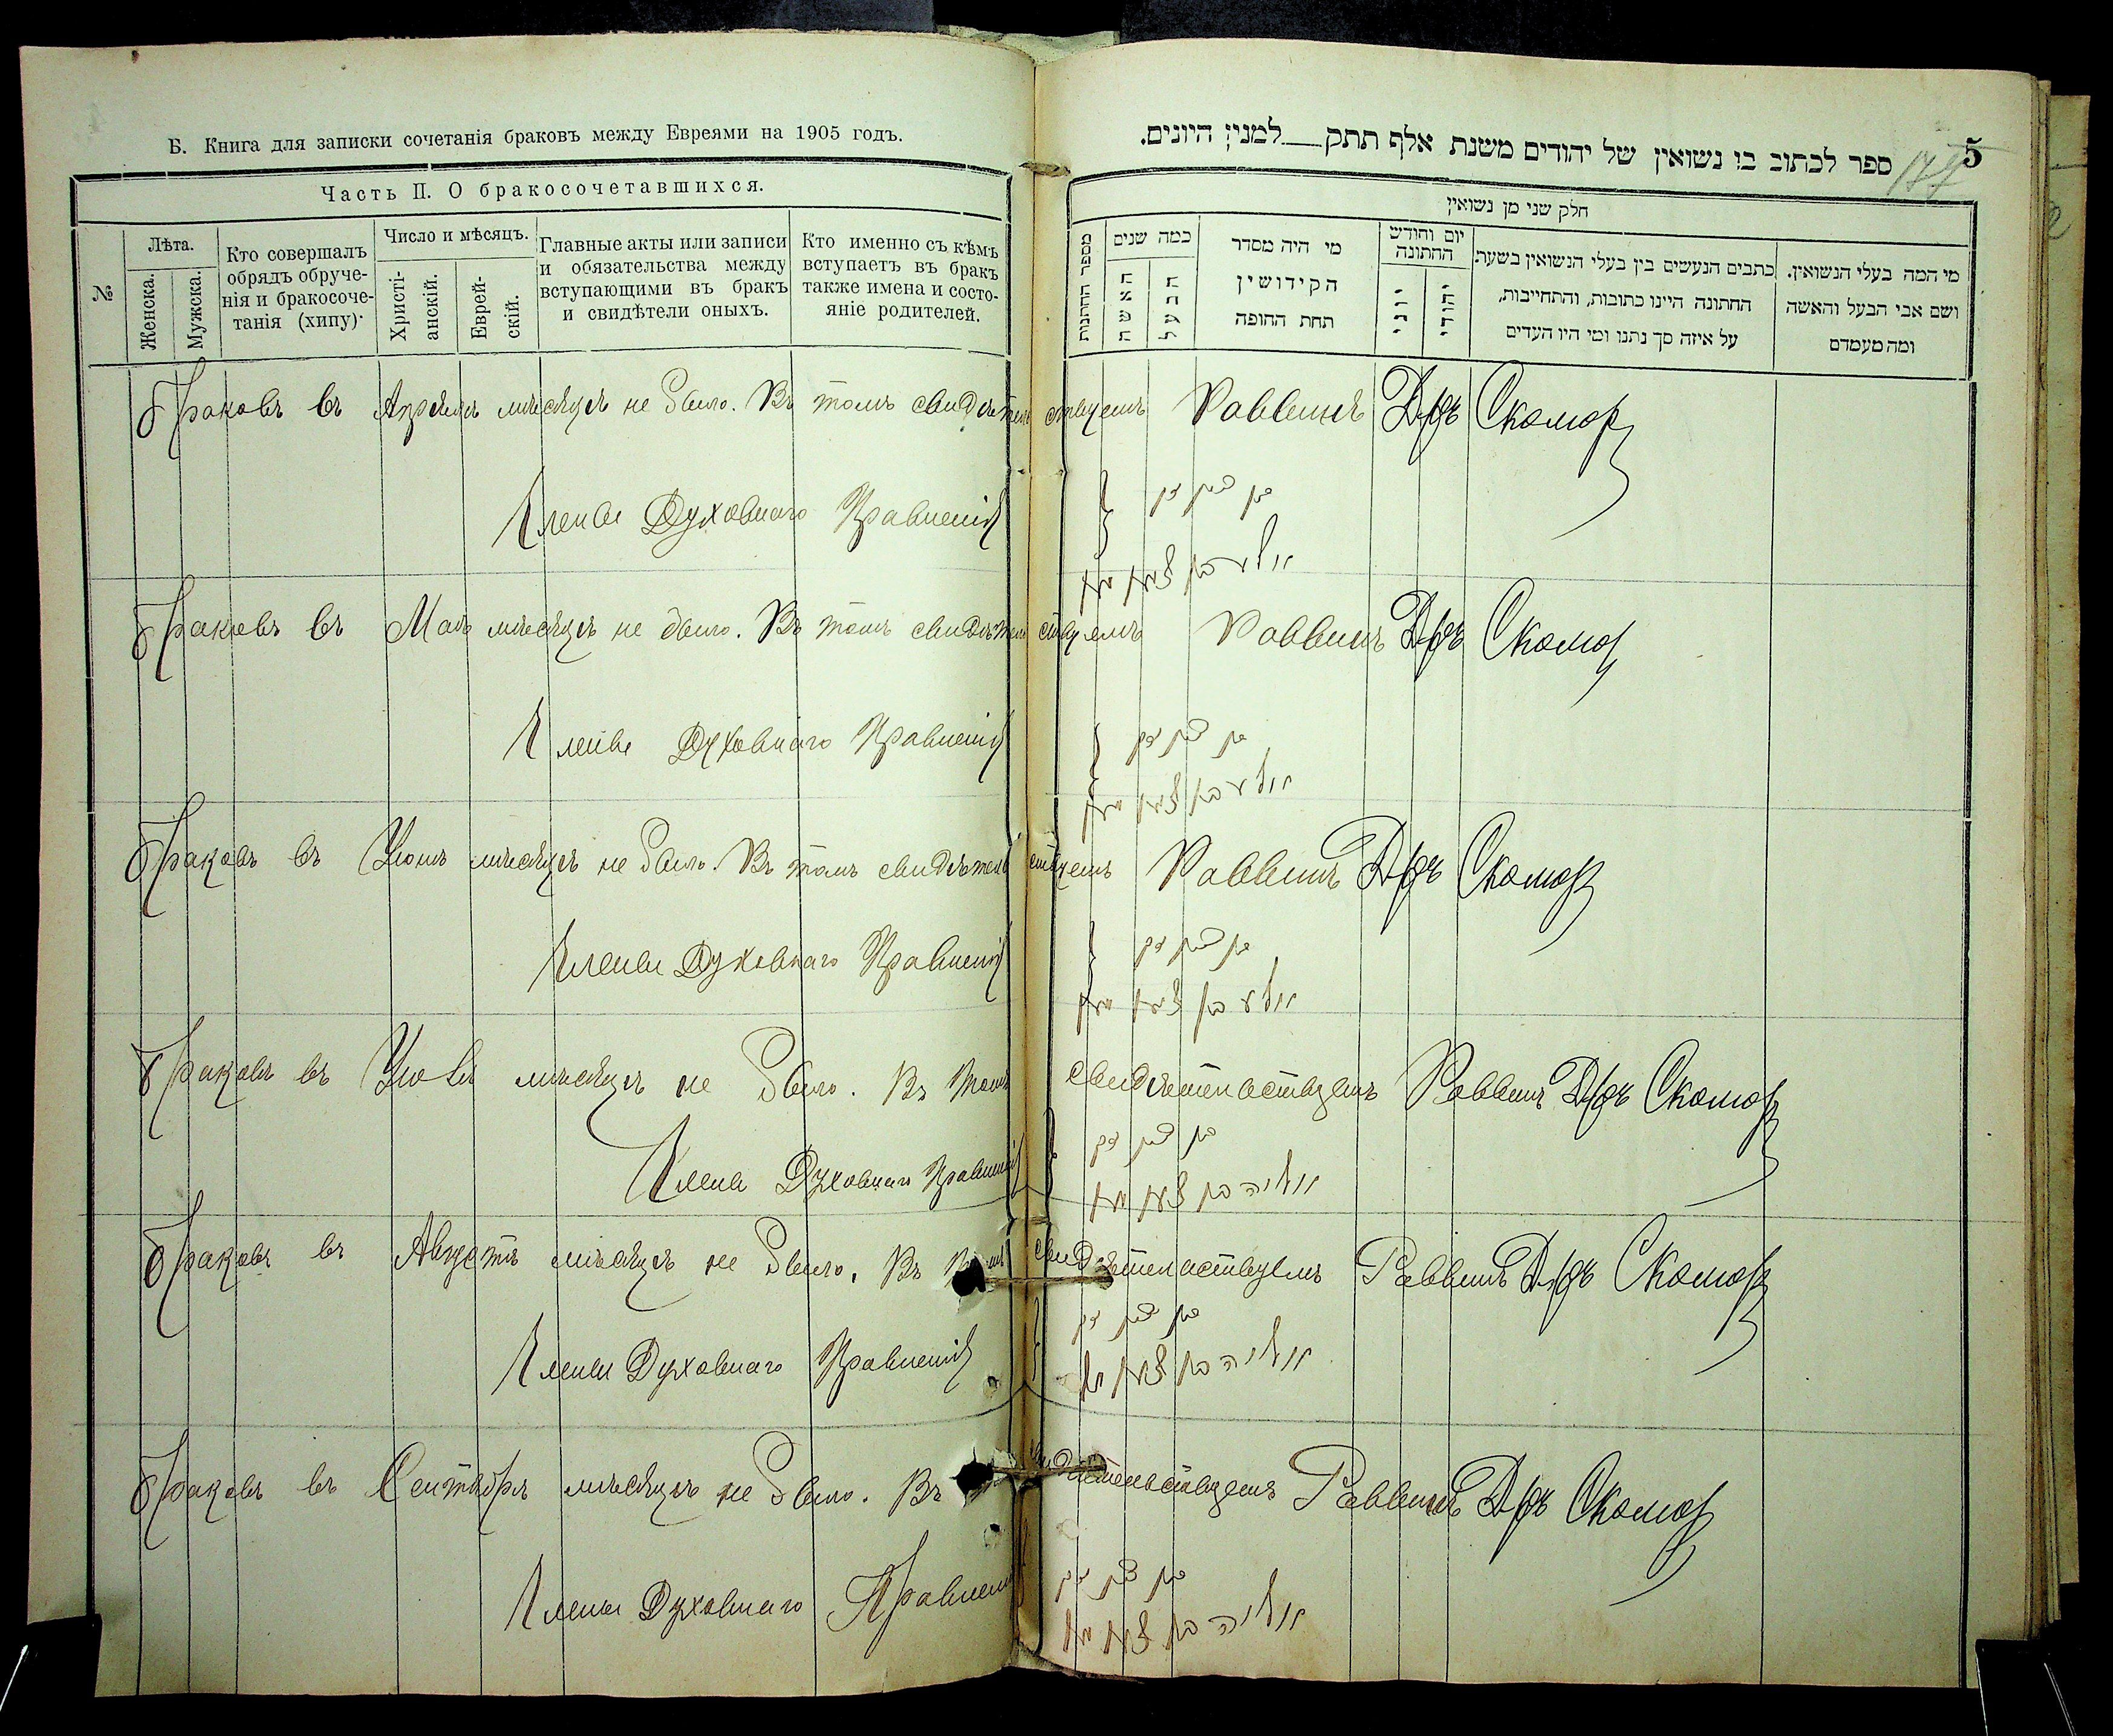 Б. Книга для записки сочетанія браковъ между Евреями на 1905 годъ.
Часть II. О бракосочетавшихся.
№
Лѣта.
Женска.
Мужска.
Кто совершалъ
обрядъ обруче-
нія и бракосоче-
танія (хипу).
Число и мѣсяцъ.
Христі-
анскій.
Еврей-
скій.
Главные акты или записи
и обязательства между
вступающими въ бракъ
и свидѣтели оныхъ.
Кто именно съ кѣмъ
вступаетъ въ бракъ
также имена и состо-
яніе родителей.
ספר לכתוב בו נשואין של יהודים משנת אלף תתק— למנין היונים.
5
177
חלק שני מן נשואין
מי המה בעלי הנשואין.
ושם אבי הבעל והאשה
ומה מעמדם
כתבים הנעשים בין בעלי הנשואין בשעת
החתונה היינו כתובות, והתחייבות,
על איזה סך נתנו ומי היו העדים
יום וחודש
החתונה
יהודי
יוני
מי היה מסדר
הקידושין
תחת החופה
כמה שנים
הבעל
האשה
מספר החתונות
Браковъ въ Апрѣлѣ мѣсяцѣ не было. Въ томъ свидѣтельствуемъ Раввинъ Д-ръ Скомор
Члены Духовнаго Правленія
Браковъ въ Маѣ мѣсяцѣ не было. Въ томъ свидѣтельствуемъ Раввинъ Д-ръ Скомор
Члены Духовнаго Правленія
Браковъ въ Іюнѣ мѣсяцѣ не было. Въ томъ свидѣтельствуемъ Раввинъ Д-ръ Скомор
Члены Духовнаго Правленія
Браковъ въ Іюлѣ мѣсяцѣ не было. Въ томъ свидѣтельствуемъ Раввинъ Д-ръ Скомор
Члены Духовнаго Правленія
Браковъ въ Августѣ мѣсяцѣ не было. Въ томъ свидѣтельствуемъ Раввинъ Д-ръ Скомор
Члены Духовнаго Правленія
Браковъ въ Сентябрѣ мѣсяцѣ не было. Въ свидѣтельствуемъ Раввинъ Д-ръ Скомор
Члены Духовнаго Правленія